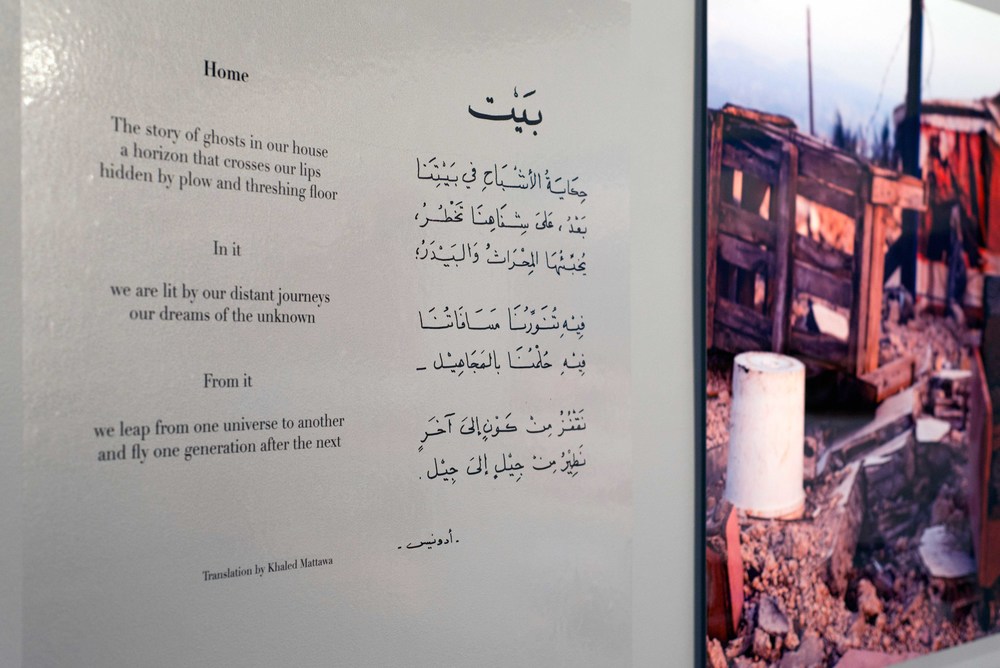 Home
The story of ghosts in our house
a horizon that crosses our lips
hidden by plow and threshing floor
In it
we are lit by our distant journeys
our dreams of the unknown
From it
we leap from one universe to another
and fly one generation after the next
Translation by Khaled Mattawa
بَيْت
حِكَايَةُ الأَشْبَاحِ فِي بَيْتِنَا
بَعْدُ، عَلَى شِفَاهِنَا تَخْطُرُ،
يُخَبِّئُهَا المِحْرَاثُ وَالبَيْدَرُ؛
فِيْهِ تُنَوِّرُنَا مَسَافَاتُنَا
فِيْهِ حُلْمُنَا بِالمَجَاهِيْلِ –
نَقْفُزُ مِنْ كَوْنٍ إِلَى آخَرٍ
نَطِيْرُ مِنْ جِيْلٍ إِلَى جِيْلِ .
- أدونيس -